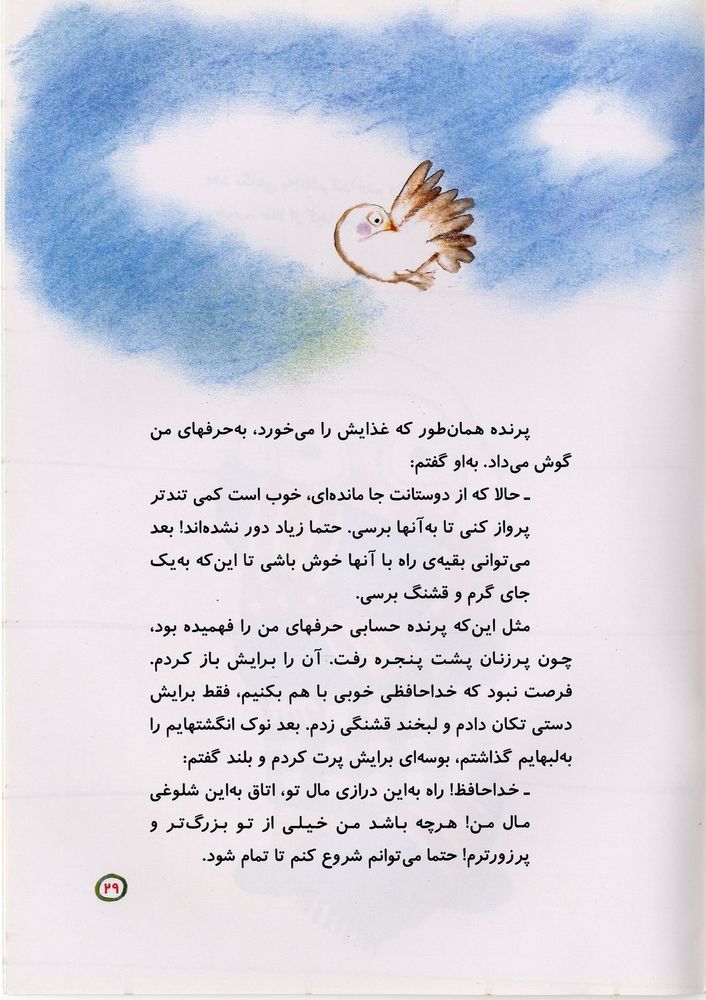 پرنده همان‌طور که غذایش را می‌خورد، به‌حرفهای من
گوش می‌داد. به‌او گفتم:
ـ حالا که از دوستانت جا مانده‌ای، خوب است کمی تندتر
پرواز کنی تا به‌آنها برسی. حتما زیاد دور نشده‌اند! بعد
می‌توانی بقیه‌ی راه با آنها خوش باشی تا این‌که به‌یک
جای گرم و قشنگ برسی.
مثل این‌که پرنده حسابی حرفهای من را فهمیده بود،
چون پرزنان پشت پنجره رفت. آن را برایش باز کردم.
فرصت نبود که خداحافظی خوبی با هم بکنیم، فقط برایش
دستی تکان دادم و لبخند قشنگی زدم. بعد نوک انگشتهایم را
به‌لبهایم گذاشتم، بوسه‌ای برایش پرت کردم و بلند گفتم:
ـ خداحافظ! راه به‌این درازی مال تو، اتاق به‌این شلوغی
مال من! هرچه باشد من خیلی از تو بزرگ‌تر و
پرزورترم! حتما می‌توانم شروع کنم تا تمام شود.
۲۹